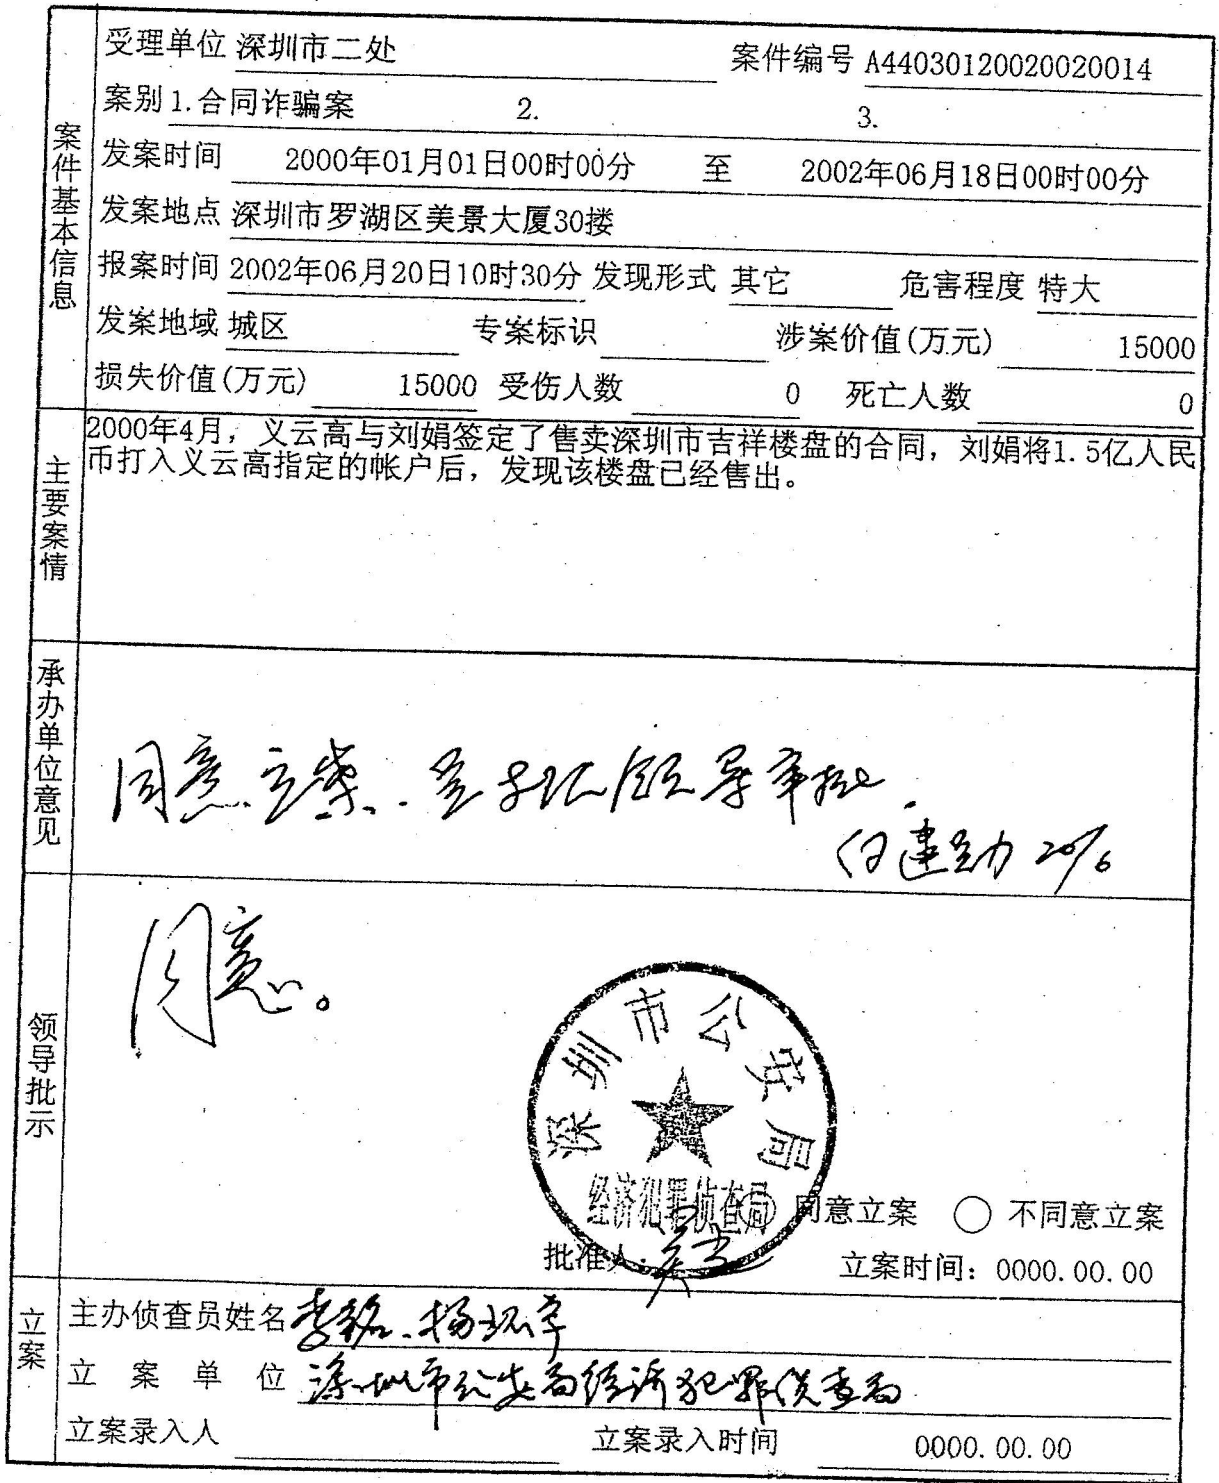 受理单位 深圳市二处 案件编号 A44030120020020014
案别 1.合同诈骗案 2. 3.
发案时间 2000年01月01日00时00分 至 2002年06月18日00时00分
发案地点 深圳市罗湖区美景大厦30搂
报案时间 2002年06月20日10时30分 发现形式 其它 危害程度 特大
发案地域 城区 专案标识 涉案价值(万元) 15000
损失价值(万元) 15000 受伤人数 0 死亡人数 0
案件基本信息
2000年4月，义云高与刘娟签定了售卖深圳市吉祥楼盘的合同，刘娟将1.5亿人民
币打入义云高指定的帐户后，发现该楼盘已经售出。
主要案情
承办单位意见
同意立案.呈 领导审批.
20/6
领导批示
同意。
深圳市公安局
经济犯罪侦查局
同意立案 ○ 不同意立案
批准人：
立案时间：0000.00.00
立案
主办侦查员姓名
立案单位 深圳市公安局经济犯罪侦查局
立案录入人 立案录入时间 0000.00.00